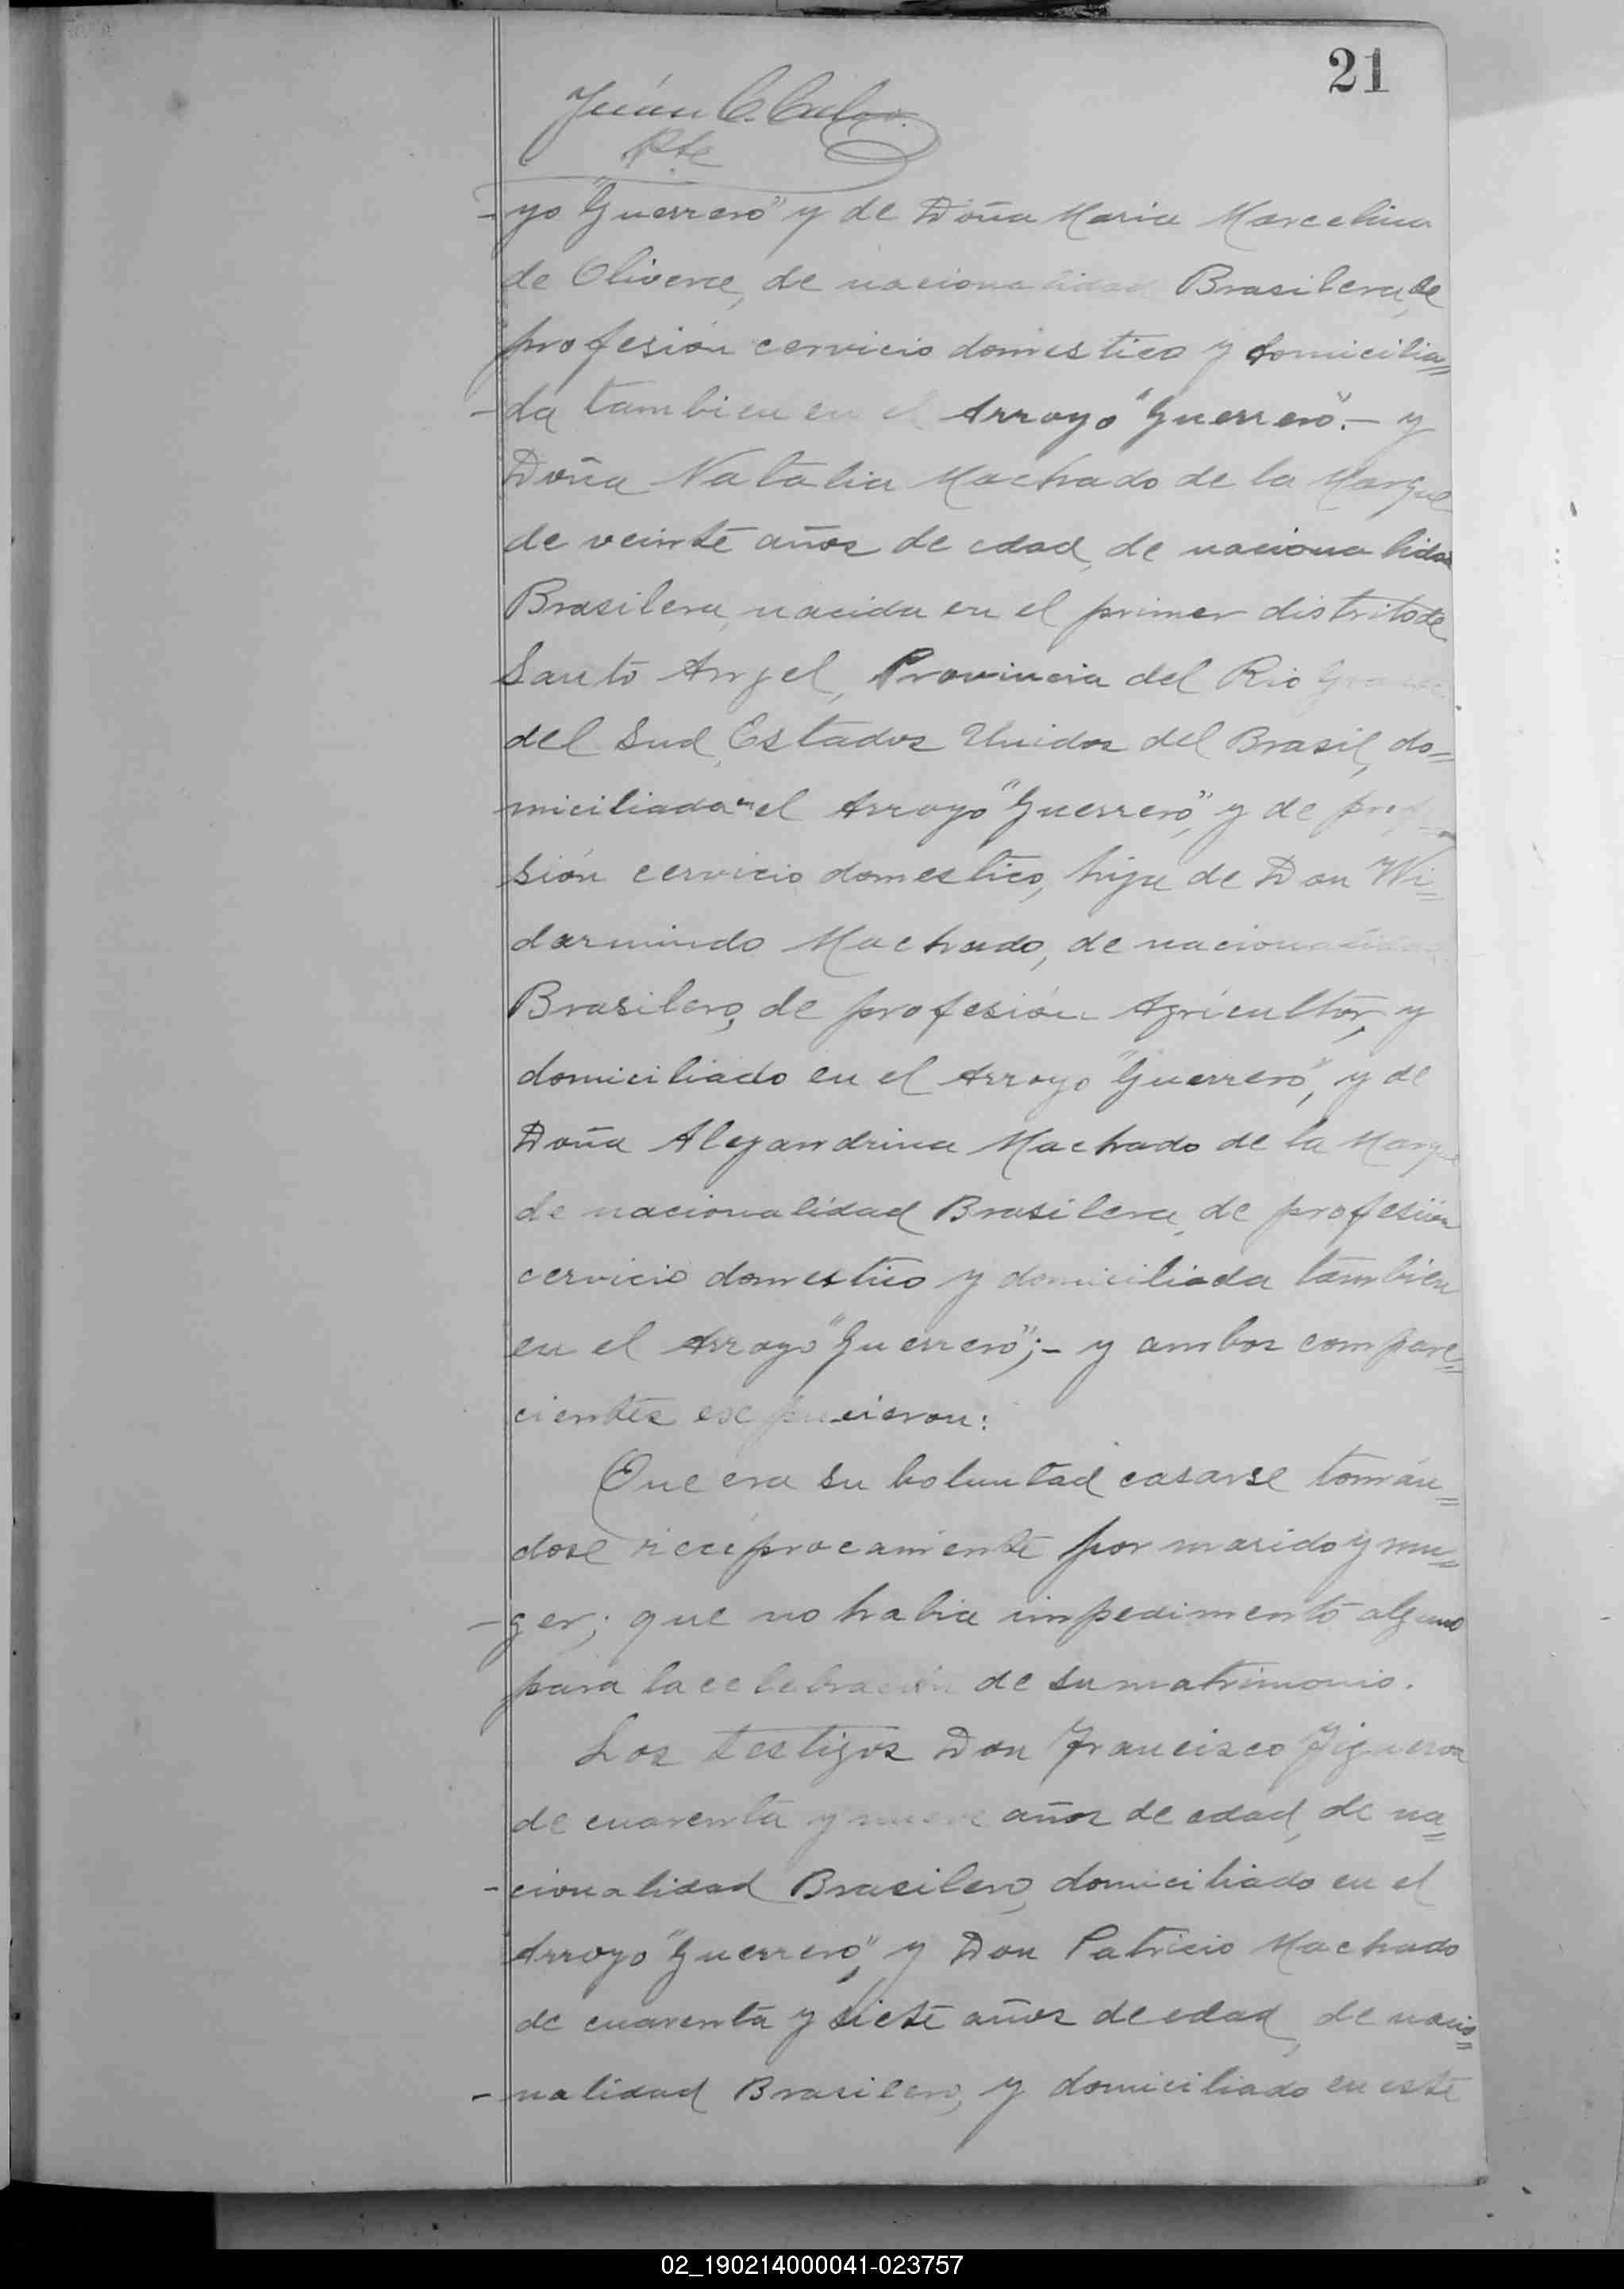 21
Juan C. Calvo.
Pte
-yo "Guerrero" y de Doña Maria Marcelina
de Olivera, de nacionalidad Brasilera, de
profesión cervicio domestico y domicilia=
-da tambien en el Arroyo "Guerrero".- y
Doña Natalia Machado de la Marque
de veinte años de edad, de nacionalidad
Brasilera, nacida en el primer distrito de
Santo Angel, Provincia del Rio Grande
del Sud, Estados Unidos del Brasil, do=
miciliada en el Arroyo "Guerrero", y de profe
sión cervicio domestico, hija de Don Wi=
darmindo Machado, de nacionalidad
Brasilero, de profesión Agricultor, y
domiciliado en el Arroyo "Guerrero", y de
Doña Alejandrina Machado de la Marque
de nacionalidad Brasilera, de profesión
cervicio domestico y domiciliada tambien
en el Arroyo "Guerrero";- y ambos compare=
cientes expucieron:
Que era su boluntad casarse tomán=
dose reciprocamente por marido y mu=
-ger; que no habia impedimento alguno
para la celebración de su matrimonio.
Los testigos Don Francisco Figueroa
de cuarenta y nueve años de edad, de na=
-cionalidad Brasilero, domiciliado en el
Arroyo "Guerrero", y Don Patricio Machado
de cuarenta y siete años de edad, de nacio=
-nalidad Brasilero, y domiciliado en este
02_190214000041-023757